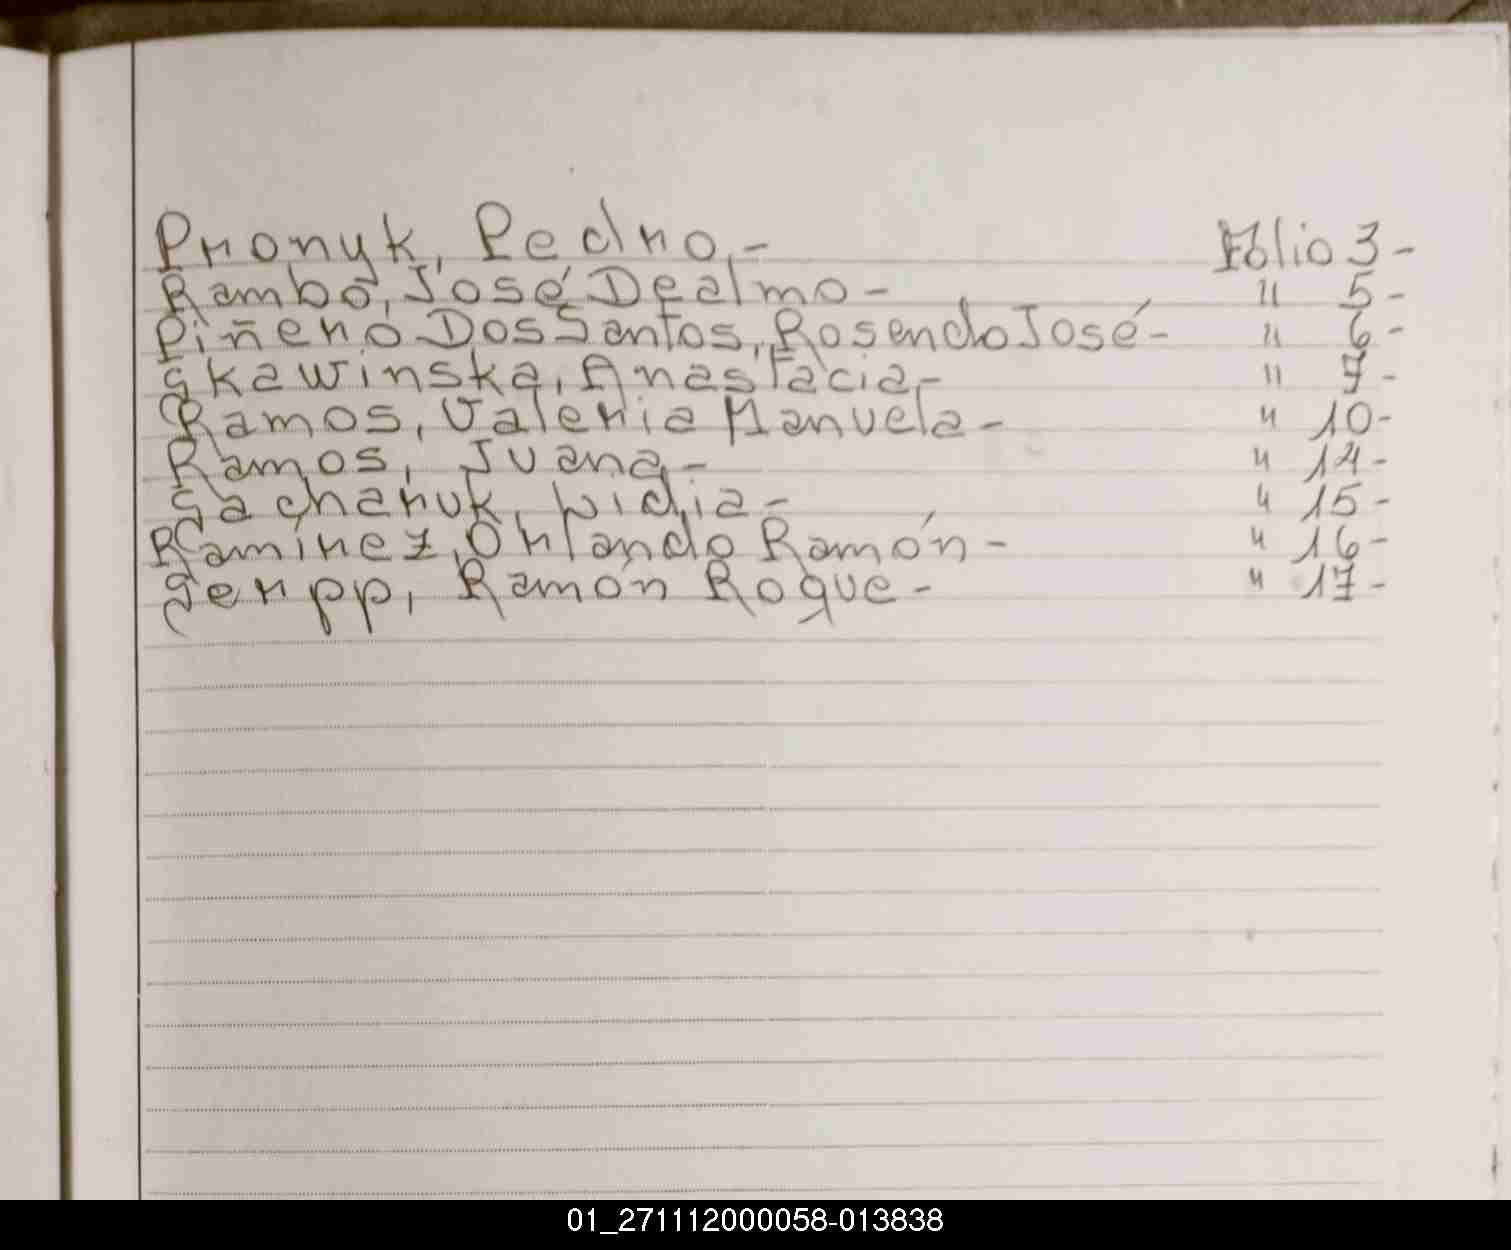 Pronyk, Pedro.- Folio 3-
Rambo, José Dealmo- " 5-
Piñero Dos Santos, Rosendo José- " 6-
Skawinska, Anastacia- " 7-
Ramos, Valeria Manuela- " 10-
Ramos, Juana- " 14-
Sacharuk, Lidia- " 15-
Ramírez, Orlando Ramón- " 16-
Serpp, Ramón Roque- " 17-
01_271112000058-013838